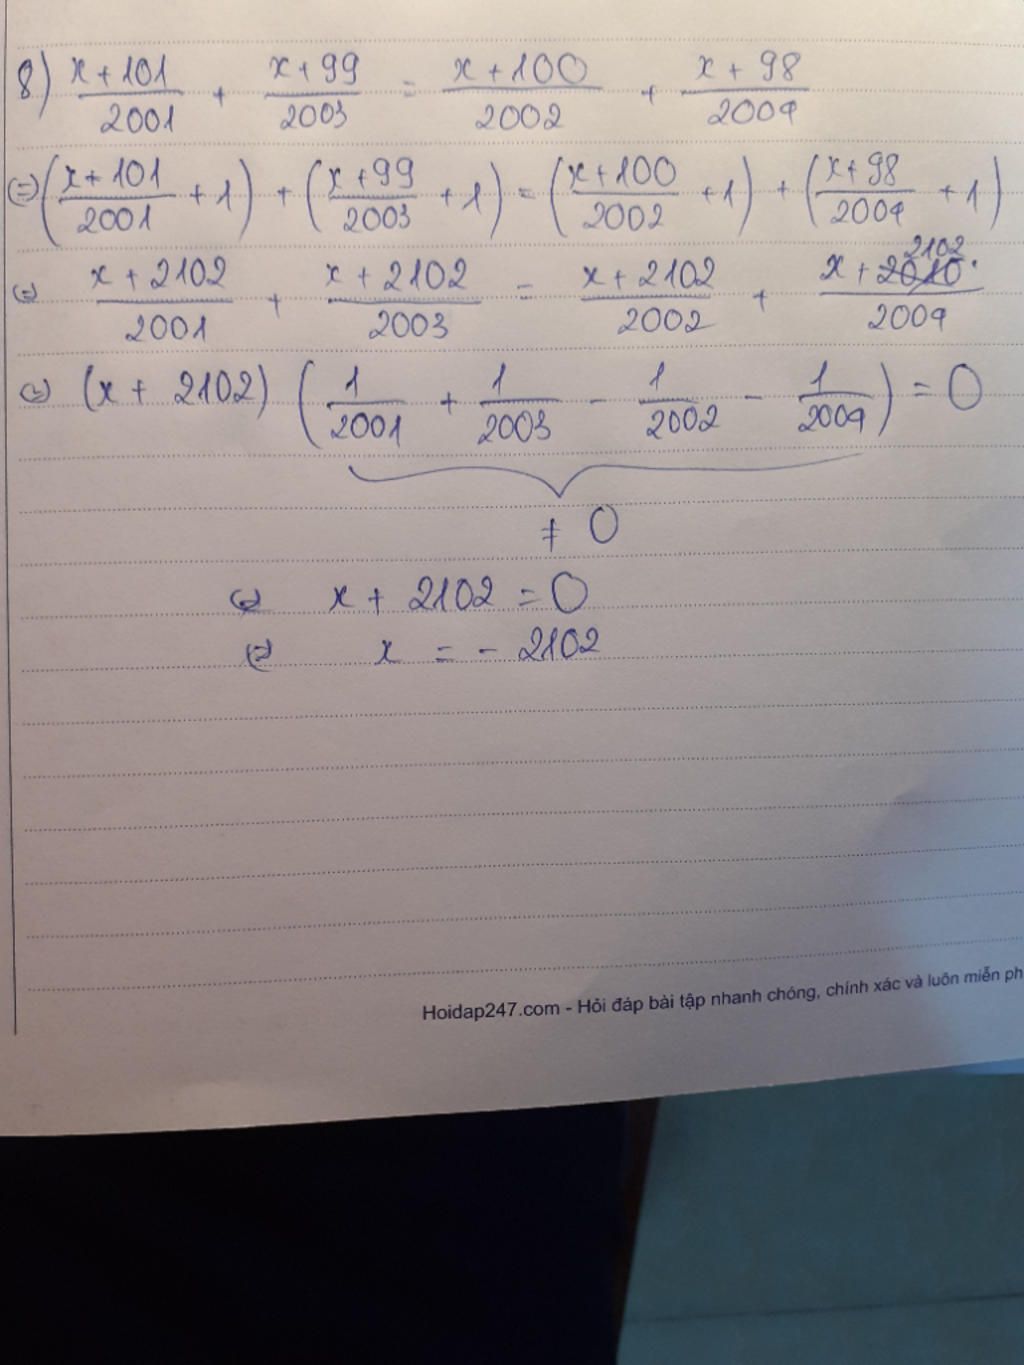 8) (x+101)/2001 + (x+99)/2003 = (x+100)/2002 + (x+98)/2004
(=) ((x+101)/2001 + 1) + ((x+99)/2003 + 1) = ((x+100)/2002 + 1) + ((x+98)/2004 + 1)
(=) (x+2102)/2001 + (x+2102)/2003 = (x+2102)/2002 + (x+2102)/2004
(=) (x + 2102) (1/2001 + 1/2003 - 1/2002 - 1/2004) = 0
≠ 0
(=) x + 2102 = 0
(=) x = - 2102
Hoidap247.com - Hỏi đáp bài tập nhanh chóng, chính xác và luôn miễn ph